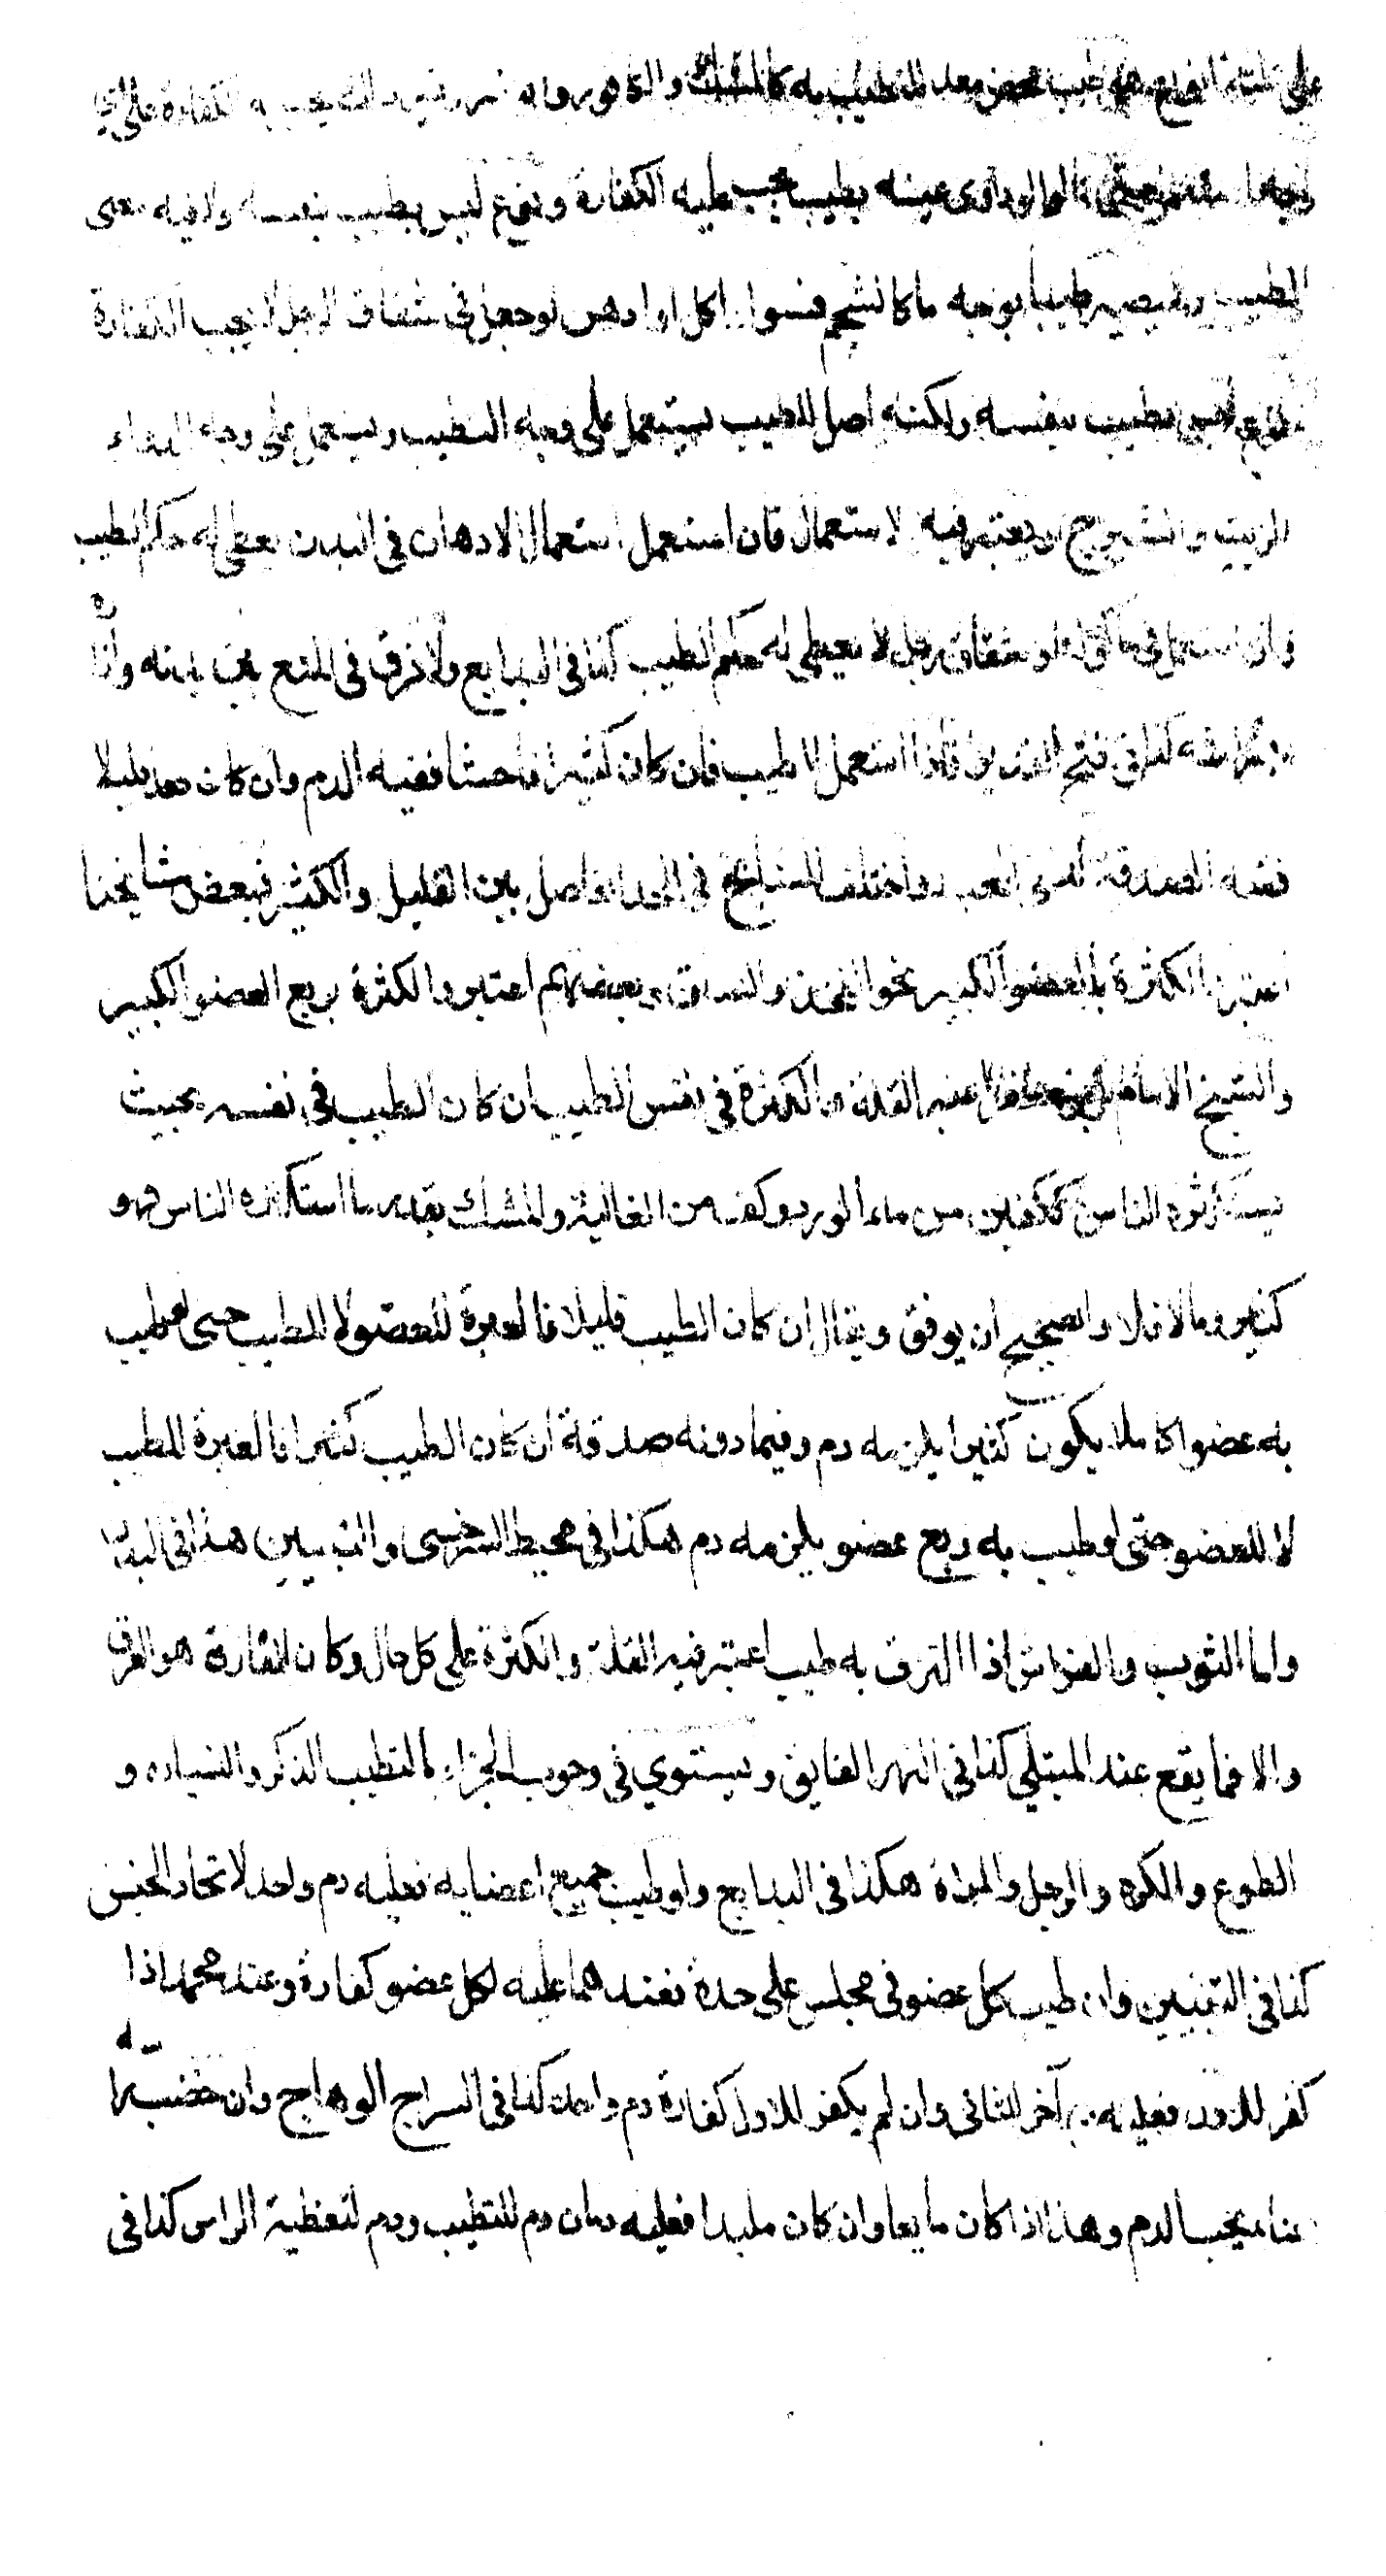 على ثلثة انواع نوع طيب محض معد للتطيب به كالمسك والكافور تجب به الكفارة على اي
وجه استعمل حتى قالوا لو داوى عينه بطيب يجب عليه الكفارة ونوع ليس بطيب بنفسه ولا فيه معنى
الطيب ولا يصير طيبا بوجه ما كالشحم فسوا اكل او ادهن او جعل في شقاق الرجل لا يجب الكفارة
ونوع ليس بطيب بنفسه ولكنه اصل للطيب يستعمل على وجه التطيب ويستعمل على وجه الدواء
كالزيت والشيرج ويعتبر فيه الاستعمال فان استعمل استعمال الادهان في البدن يعطى له حكم الطيب
وان استعمل في ماكول او شقاق رجل لا يعطى له حكم الطيب كذا في البدايع ولا فرق في المنع بين بدنه وازاره
وفراشه كذا في فتح القدير فاذا استعمل الطيب فان كان كثيرا فاحشا ففيه الدم وان كان قليلا
ففيه الصدقة كذا في المحيط واختلف المشايخ في الحد الفاصل بين القليل والكثير فبعض مشايخنا
اعتبروا الكثرة بالعضو الكبير نحو الفخذ والساق وبعضهم اعتبروا الكثرة بربع العضو الكبير
والشيخ الامام ابو جعفر اعتبر القلة والكثرة في نفس الطيب ان كان الطيب في نفسه بحيث
يستكثره الناس ككفين من ماء الورد وكف من الغالية والمسك بقدر ما استكثره الناس فهو
كثير وما لا فلا والصحيح ان يوفق ويقال ان كان الطيب قليلا فالعبرة للعضو لا للطيب حتى لو طيب
به عضوا كاملا يكون كثيرا يلزمه دم وفيما دونه صدقة ان كان الطيب كثيرا فالعبرة للطيب
لا للعضو حتى لو طيب به ربع عضو يلزمه دم هكذا في محيط السرخسي والتبيين هذا في البدن
واما الثوب والفراش اذا التزق به طيب اعتبر فيه القلة والكثرة على كل حال وكان الفارق هو العرف
والا فما يقع عند المبتلى كذا في النهر الفايق ويستوي في وجوب الجزاء بالتطيب الذكر والنسيان و
الطوع والكره والرجل والمراة هكذا في البدايع ولو طيب جميع اعضايه فعليه دم واحد لاتحاد الجنس
كذا في التبيين وان طيب كل عضو في مجلس على حدة فعندهما عليه لكل عضو كفارة وعند محمد اذا
كفر للاول فعليه دم آخر للثاني وان لم يكفر للاول كفاره دم واحد كذا في السراج الوهاج وان خضب راسه
بحناء يجب الدم وهذا اذا كان مايعا وان كان ملبدا فعليه دمان دم للتطيب ودم لتغطية الراس كذا في